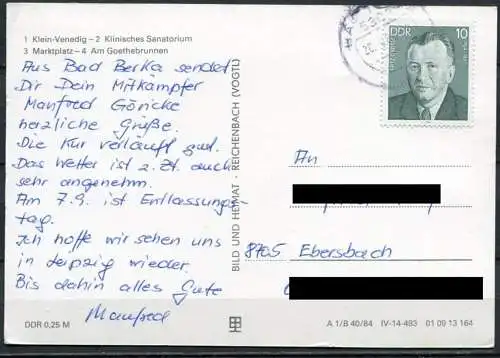 1 Klein-Venedig – 2 Klinisches Sanatorium
3 Marktplatz – 4 Am Goethebrunnen
Aus Bad Berka sendet
Dir Dein Mitkämpfer
Manfred Göricke
herzliche Grüße.
Die Kur verläuft gut.
Das Wetter ist z. Zt. auch
sehr angenehm.
Am 7.9. ist Entlassungs-
tag.
Ich hoffe wir sehen uns
in Leipzig wieder.
Bis dahin alles Gute
Manfred
DDR 0,25 M
BILD UND HEIMAT · REICHENBACH (VOGTL)
DDR
10
An
8705 Ebersbach
A 1/B 40/84 IV-14-493 01 09 13 164